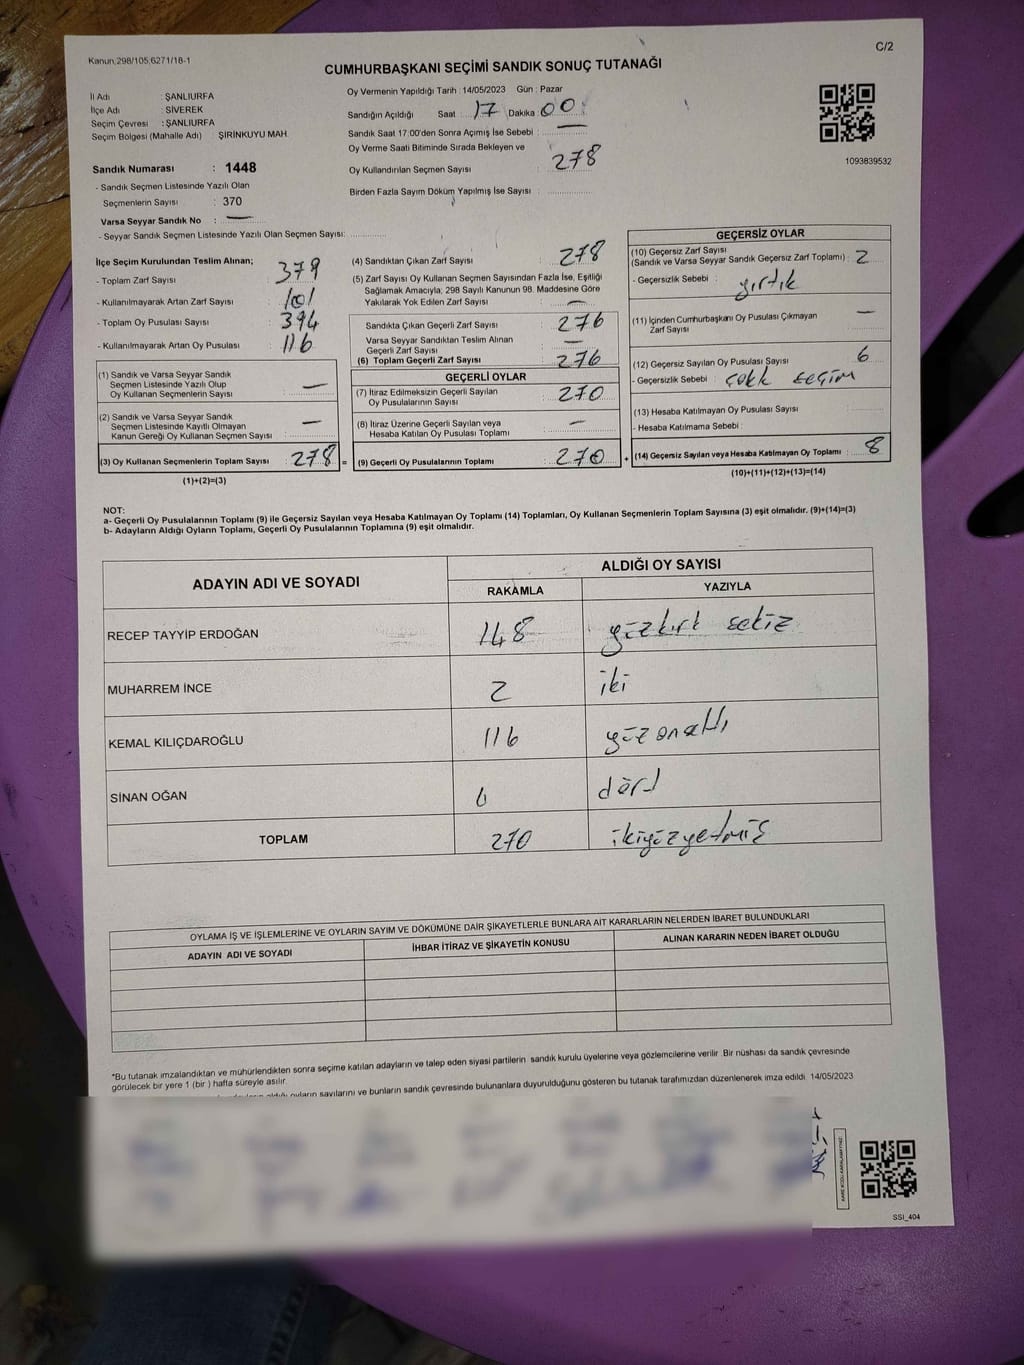 Kanun,298/105,6271/18-1
C/2
CUMHURBAŞKANI SEÇİMİ SANDIK SONUÇ TUTANAĞI
İl Adı : ŞANLIURFA
İlçe Adı : SİVEREK
Seçim Çevresi : ŞANLIURFA
Seçim Bölgesi (Mahalle Adı) : ŞİRİNKUYU MAH.
Sandık Numarası : 1448
- Sandık Seçmen Listesinde Yazılı Olan
Seçmenlerin Sayısı : 370
Varsa Seyyar Sandık No : —
- Seyyar Sandık Seçmen Listesinde Yazılı Olan Seçmen Sayısı:
Oy Vermenin Yapıldığı Tarih : 14/05/2023 Gün : Pazar
Sandığın Açıldığı Saat : 17 Dakika 00
Sandık Saat 17:00'den Sonra Açımış İse Sebebi : —
Oy Verme Saati Bitiminde Sırada Bekleyen ve
Oy Kullandırılan Seçmen Sayısı : 278
Birden Fazla Sayım Döküm Yapılmış İse Sayısı :
1093839532
İlçe Seçim Kurulundan Teslim Alınan;
- Toplam Zarf Sayısı : 379
- Kullanılmayarak Artan Zarf Sayısı : 101
- Toplam Oy Pusulası Sayısı : 394
- Kullanılmayarak Artan Oy Pusulası : 116
(1) Sandık ve Varsa Seyyar Sandık
Seçmen Listesinde Yazılı Olup
Oy Kullanan Seçmenlerin Sayısı : —
(2) Sandık ve Varsa Seyyar Sandık
Seçmen Listesinde Kayıtlı Olmayan
Kanun Gereği Oy Kullanan Seçmen Sayısı : —
(3) Oy Kullanan Seçmenlerin Toplam Sayısı : 278 =
(1)+(2)=(3)
(4) Sandıktan Çıkan Zarf Sayısı : 278
(5) Zarf Sayısı Oy Kullanan Seçmen Sayısından Fazla İse, Eşitliği
Sağlamak Amacıyla, 298 Sayılı Kanunun 98. Maddesine Göre
Yakılarak Yok Edilen Zarf Sayısı : —
Sandıkta Çıkan Geçerli Zarf Sayısı : 276
Varsa Seyyar Sandıktan Teslim Alınan
Geçerli Zarf Sayısı : —
(6) Toplam Geçerli Zarf Sayısı : 276
GEÇERLİ OYLAR
(7) İtiraz Edilmeksizin Geçerli Sayılan
Oy Pusulalarının Sayısı : 270
(8) İtiraz Üzerine Geçerli Sayılan veya
Hesaba Katılan Oy Pusulası Toplamı : —
(9) Geçerli Oy Pusulalarının Toplamı : 270 +
GEÇERSİZ OYLAR
(10) Geçersiz Zarf Sayısı
(Sandık ve Varsa Seyyar Sandık Geçersiz Zarf Toplamı) : 2
- Geçersizlik Sebebi : yırtık
(11) İçinden Cumhurbaşkanı Oy Pusulası Çıkmayan
Zarf Sayısı : —
(12) Geçersiz Sayılan Oy Pusulası Sayısı : 6
- Geçersizlik Sebebi : çokk seçim
(13) Hesaba Katılmayan Oy Pusulası Sayısı :
- Hesaba Katılmama Sebebi :
(14) Geçersiz Sayılan veya Hesaba Katılmayan Oy Toplamı : 8
(10)+(11)+(12)+(13)=(14)
NOT:
a- Geçerli Oy Pusulalarının Toplamı (9) ile Geçersiz Sayılan veya Hesaba Katılmayan Oy Toplamı (14) Toplamları, Oy Kullanan Seçmenlerin Toplam Sayısına (3) eşit olmalıdır. (9)+(14)=(3)
b- Adayların Aldığı Oyların Toplamı, Geçerli Oy Pusulalarının Toplamına (9) eşit olmalıdır.
ADAYIN ADI VE SOYADI ALDIĞI OY SAYISI
RAKAMLA YAZIYLA
RECEP TAYYİP ERDOĞAN 148 yüzkırk sekiz
MUHARREM İNCE 2 iki
KEMAL KILIÇDAROĞLU 116 yüzonaltı
SİNAN OĞAN dört
TOPLAM 270 ikiyüzyetmiş
OYLAMA İŞ VE İŞLEMLERİNE VE OYLARIN SAYIM VE DÖKÜMÜNE DAİR ŞİKAYETLERLE BUNLARA AİT KARARLARIN NELERDEN İBARET BULUNDUKLARI
ADAYIN ADI VE SOYADI İHBAR İTİRAZ VE ŞİKAYETİN KONUSU ALINAN KARARIN NEDEN İBARET OLDUĞU
*Bu tutanak imzalandıktan ve mühürlendikten sonra seçime katılan adayların ve talep eden siyasi partilerin sandık kurulu üyelerine veya gözlemcilerine verilir. Bir nüshası da sandık çevresinde
görülecek bir yere 1 (bir ) hafta süreyle asılır.
oyların sayılarını ve bunların sandık çevresinde bulunanlara duyurulduğunu gösteren bu tutanak tarafımızdan düzenlenerek imza edildi. 14/05/2023
SSI_404